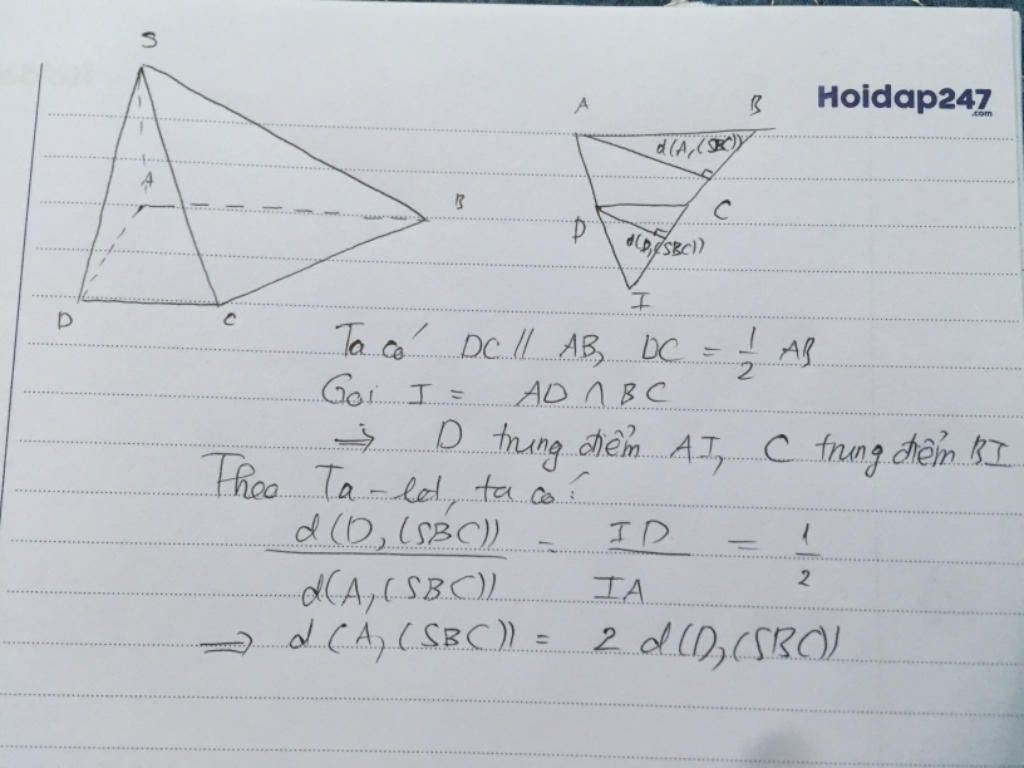 S
A
B
D
C
Hoidap247
.com
A
B
d(A,(SBC))
D
C
d(D,(SBC))
I
Ta có DC // AB, DC = 1/2 AB
Gọi I = AD ∩ BC
⇒ D trung điểm AI, C trung điểm BI
Theo Ta-let, ta có:
d(D,(SBC)) / d(A,(SBC)) = ID / IA = 1/2
⇒ d(A,(SBC)) = 2 d(D,(SBC))